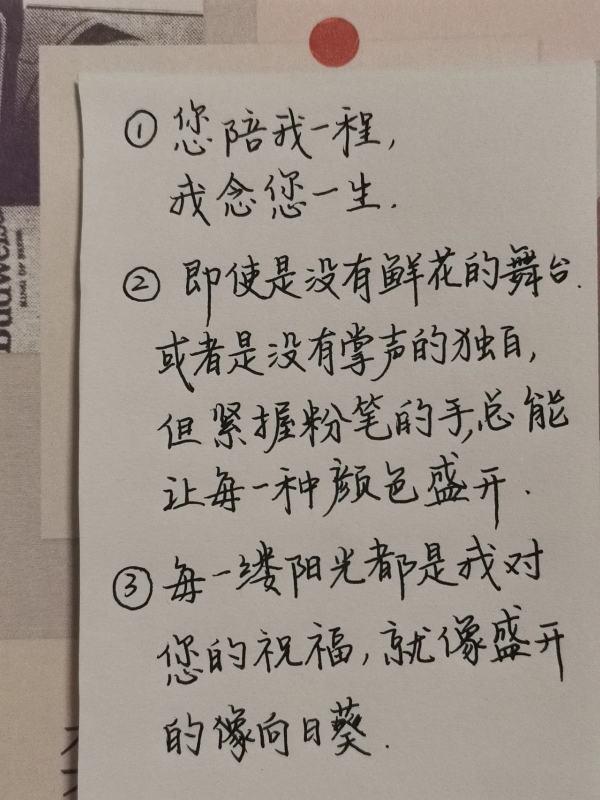 Budweiser
KING OF BEERS
①您陪我一程,
我念您一生.
②即使是没有鲜花的舞台.
或者是没有掌声的独白,
但紧握粉笔的手,总能
让每一种颜色盛开.
③每一缕阳光都是我对
您的祝福,就像盛开
的像向日葵.